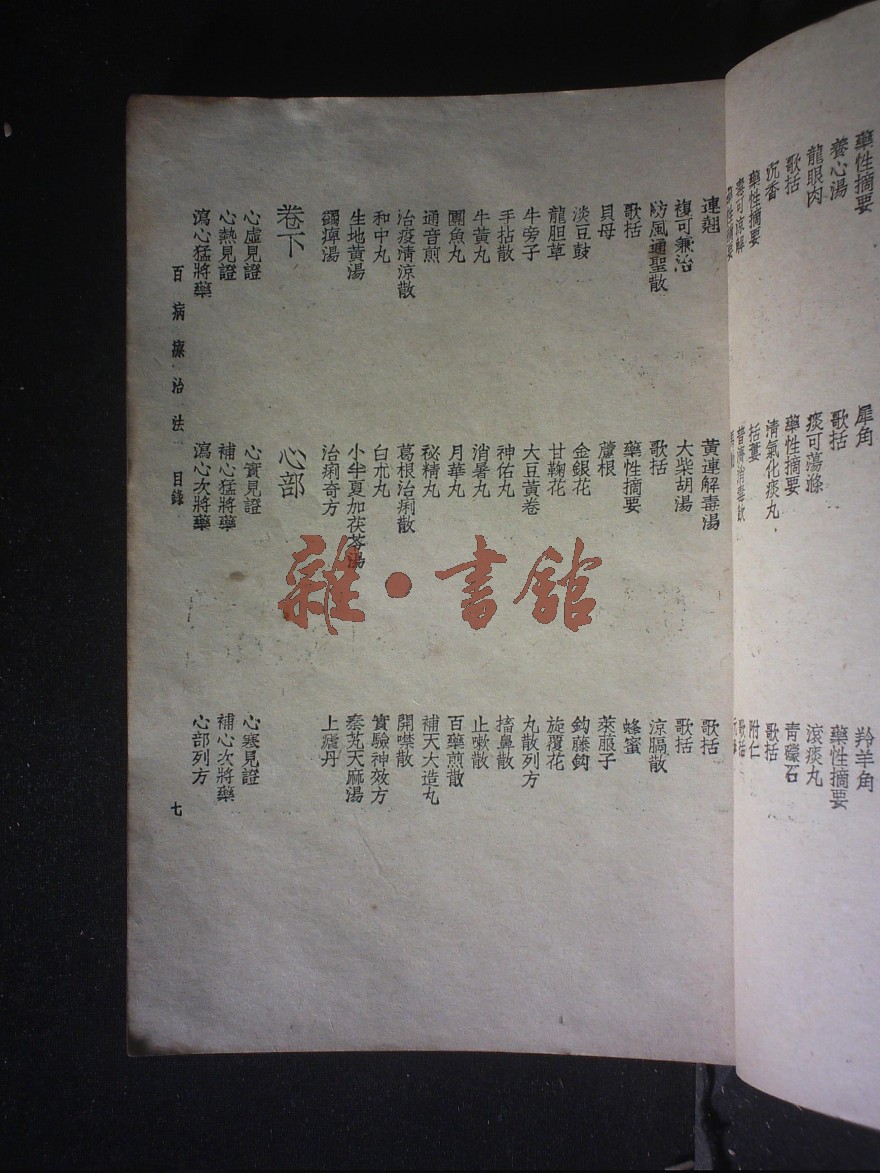 藥性摘要 犀角 羚羊角
養心湯 歌括 藥性摘要
龍眼肉 痰可蕩滌 滾痰丸
歌括 藥性摘要 青礞石
沉香 清氣化痰丸 歌括
藥性摘要 括蔞 附仁
可涼解 普濟消毒飲 歌括
連翹 黃連解毒湯 歌括
複可兼治 大柴胡湯 歌括
防風通聖散 歌括 涼膈散
歌括 藥性摘要 蜂蜜
貝母 蘆根 萊服子
淡豆鼓 金銀花 鈎藤鈎
龍胆草 甘鞠花 旋覆花
牛旁子 大豆黃卷 丸散列方
手拈散 神佑丸 搐鼻散
牛黃丸 消暑丸 止嗽散
團魚丸 月華丸 百藥煎散
通音煎 秘精丸 補天大造丸
治疫清涼散 葛根治痢散 開噤散
和中丸 白朮丸 實驗神效方
生地黃湯 小半夏加茯苓湯 秦艽天麻湯
蠲痺湯 治痢奇方 上瘧丹
卷下 心部
心虛見證 心實見證 心寒見證
心熱見證 補心猛將藥 補心次將藥
瀉心猛將藥 瀉心次將藥 心部列方
百病療治法 目錄 七
雜·書館